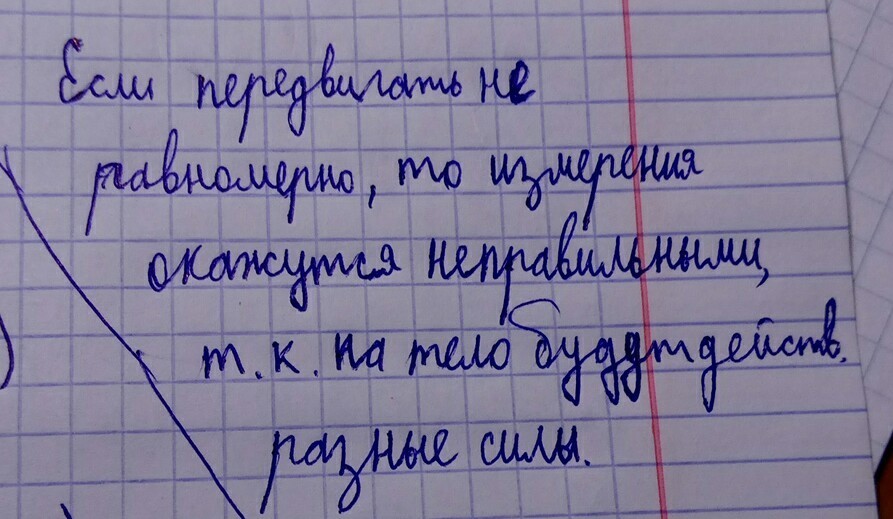 Если передвигать не
равномерно, то измерения
окажутся неправильными,
т.к. на тело будут действ.
разные силы.